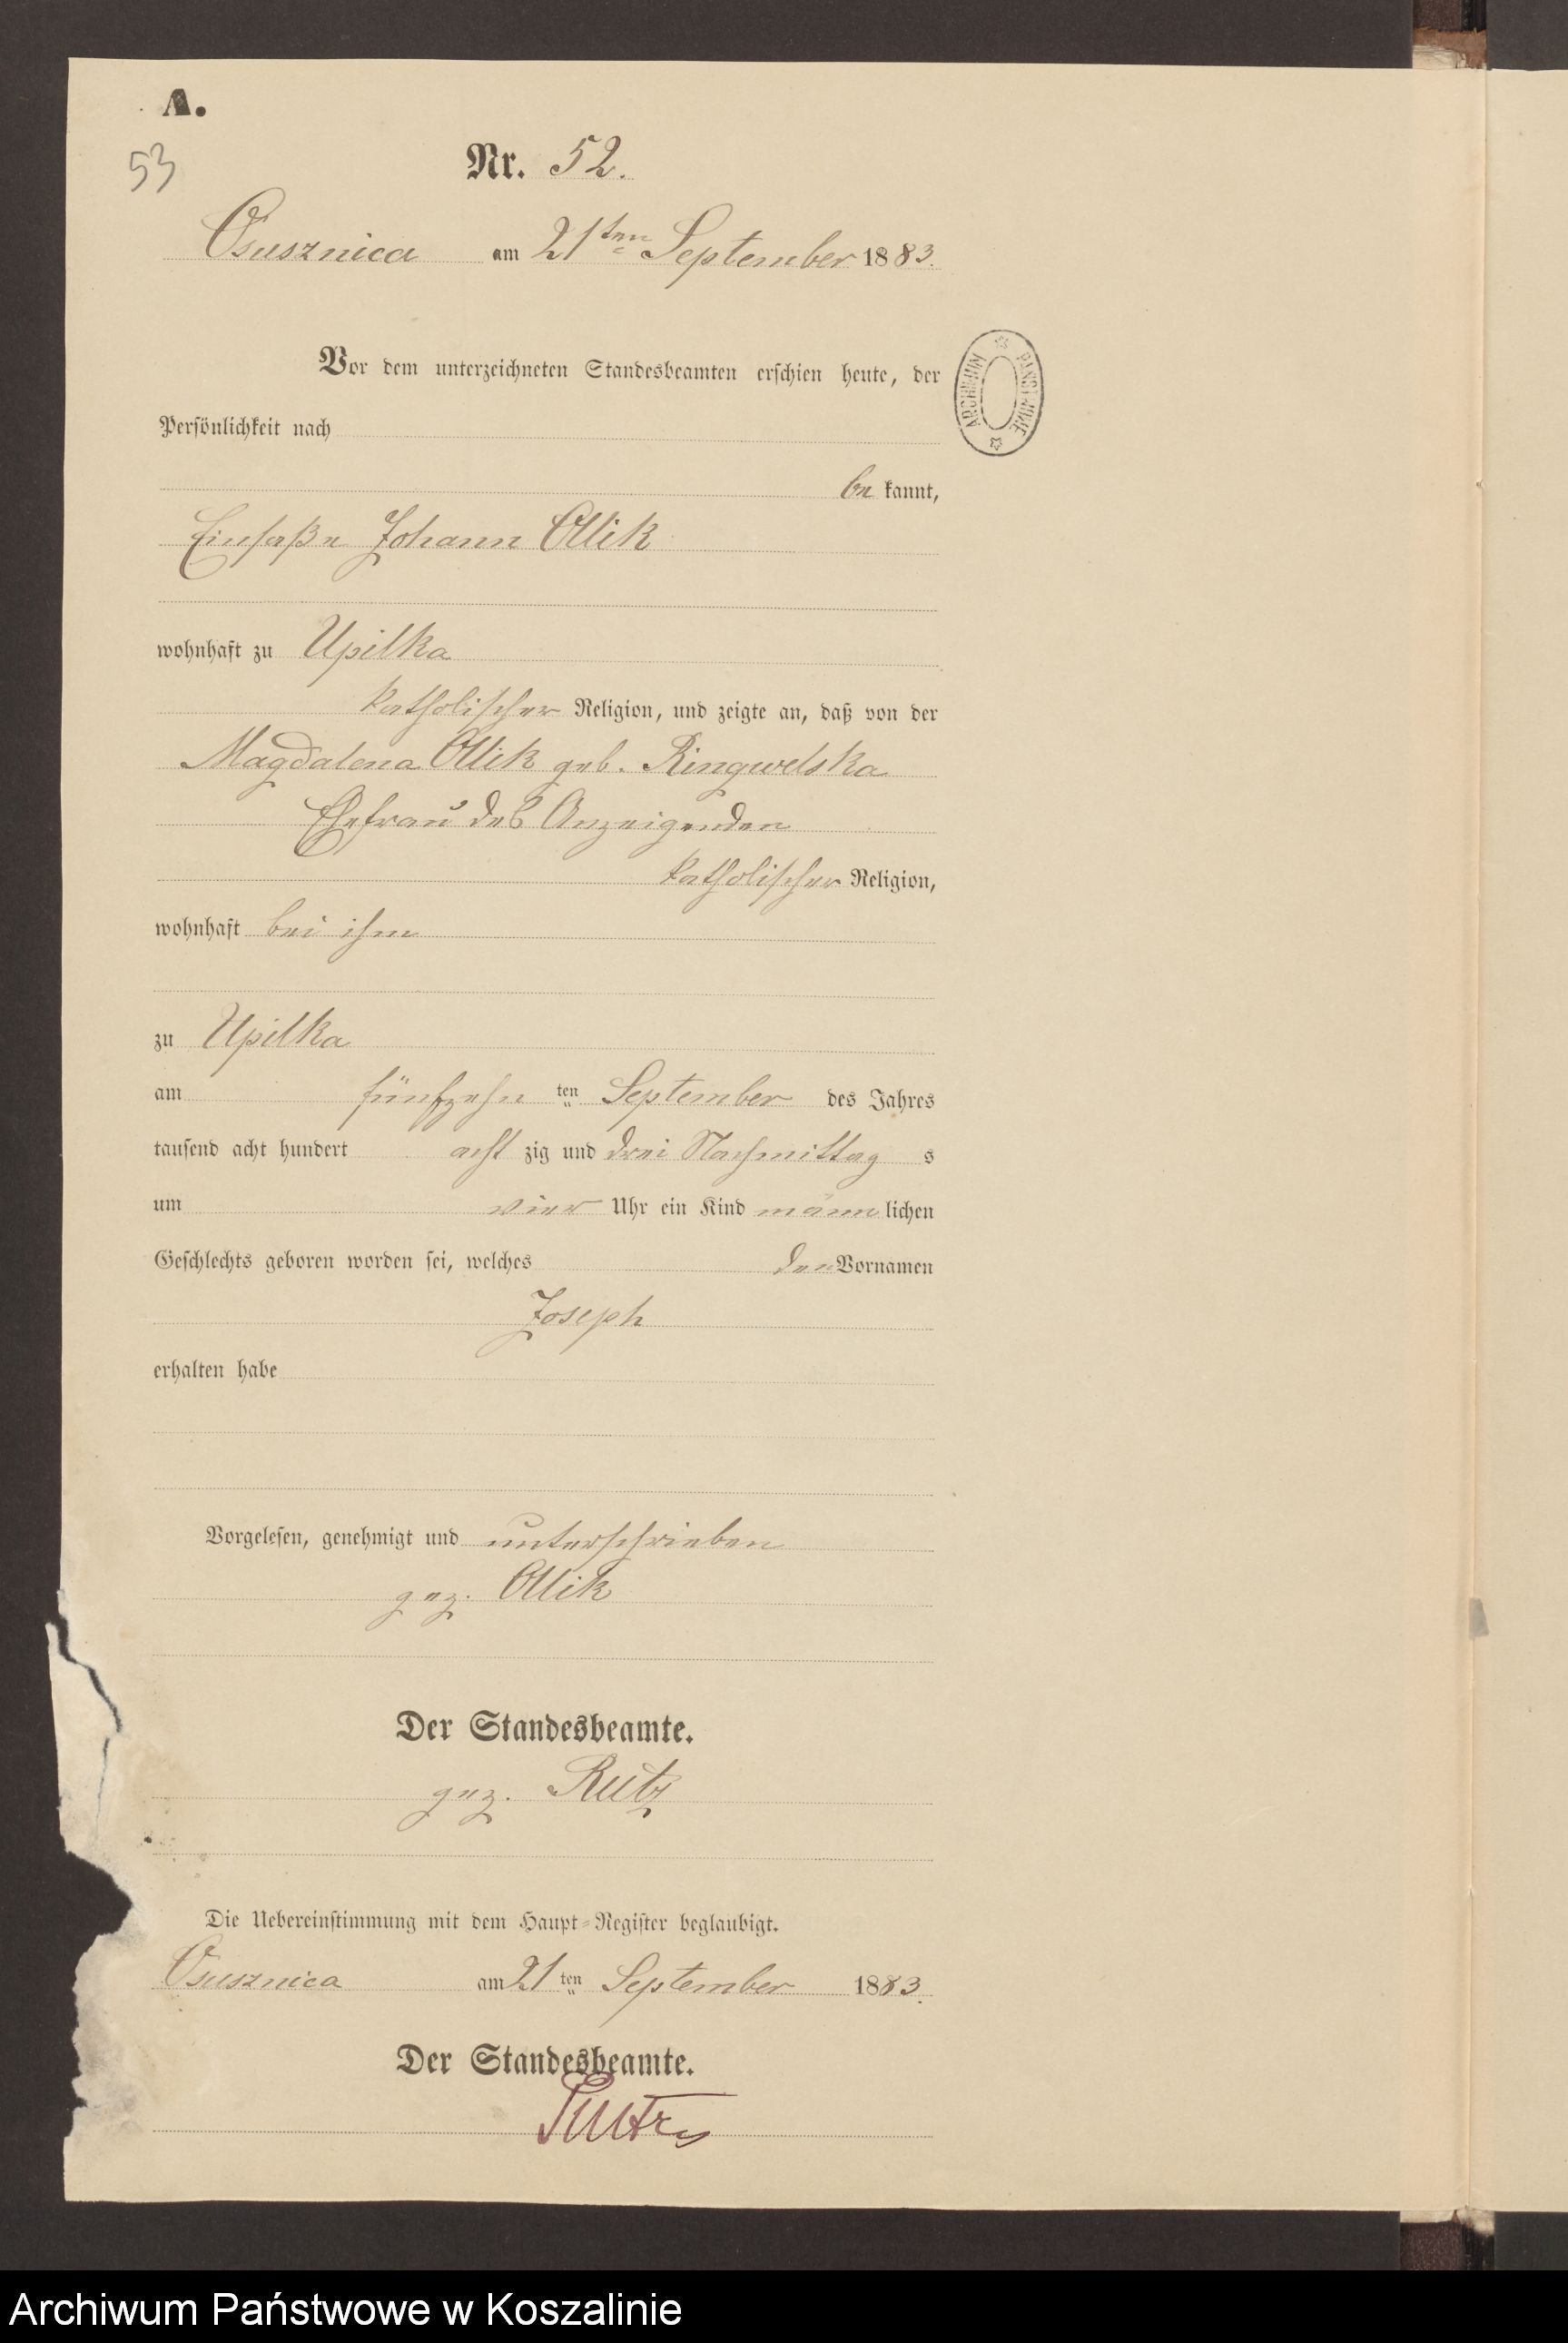 A.
53
Nr. 52.
Osusznica am 21ten September 1883.
Vor dem unterzeichneten Standesbeamten erschien heute, der
Persönlichkeit nach
be kannt,
Einsaße Johann Ollik
wohnhaft zu Upilka
katholischer Religion, und zeigte an, daß von der
Magdalena Ollik geb. Ringwelska
Ehefrau des Anzeigenden
katholischer Religion,
wohnhaft bei ihm
zu Upilka
am fünfzehn ten September des Jahres
tausend acht hundert acht zig und drei Nachmittag s
um vier Uhr ein Kind männ lichen
Geschlechts geboren worden sei, welches den Vornamen
Joseph
erhalten habe
Vorgelesen, genehmigt und unterschrieben
gez. Ollik
Der Standesbeamte.
gez. Rutz
Die Uebereinstimmung mit dem Haupt-Register beglaubigt.
Osusznica am 21 ten September 1883.
Der Standesbeamte.
ARCHIWUM
Archiwum Państwowe w Koszalinie